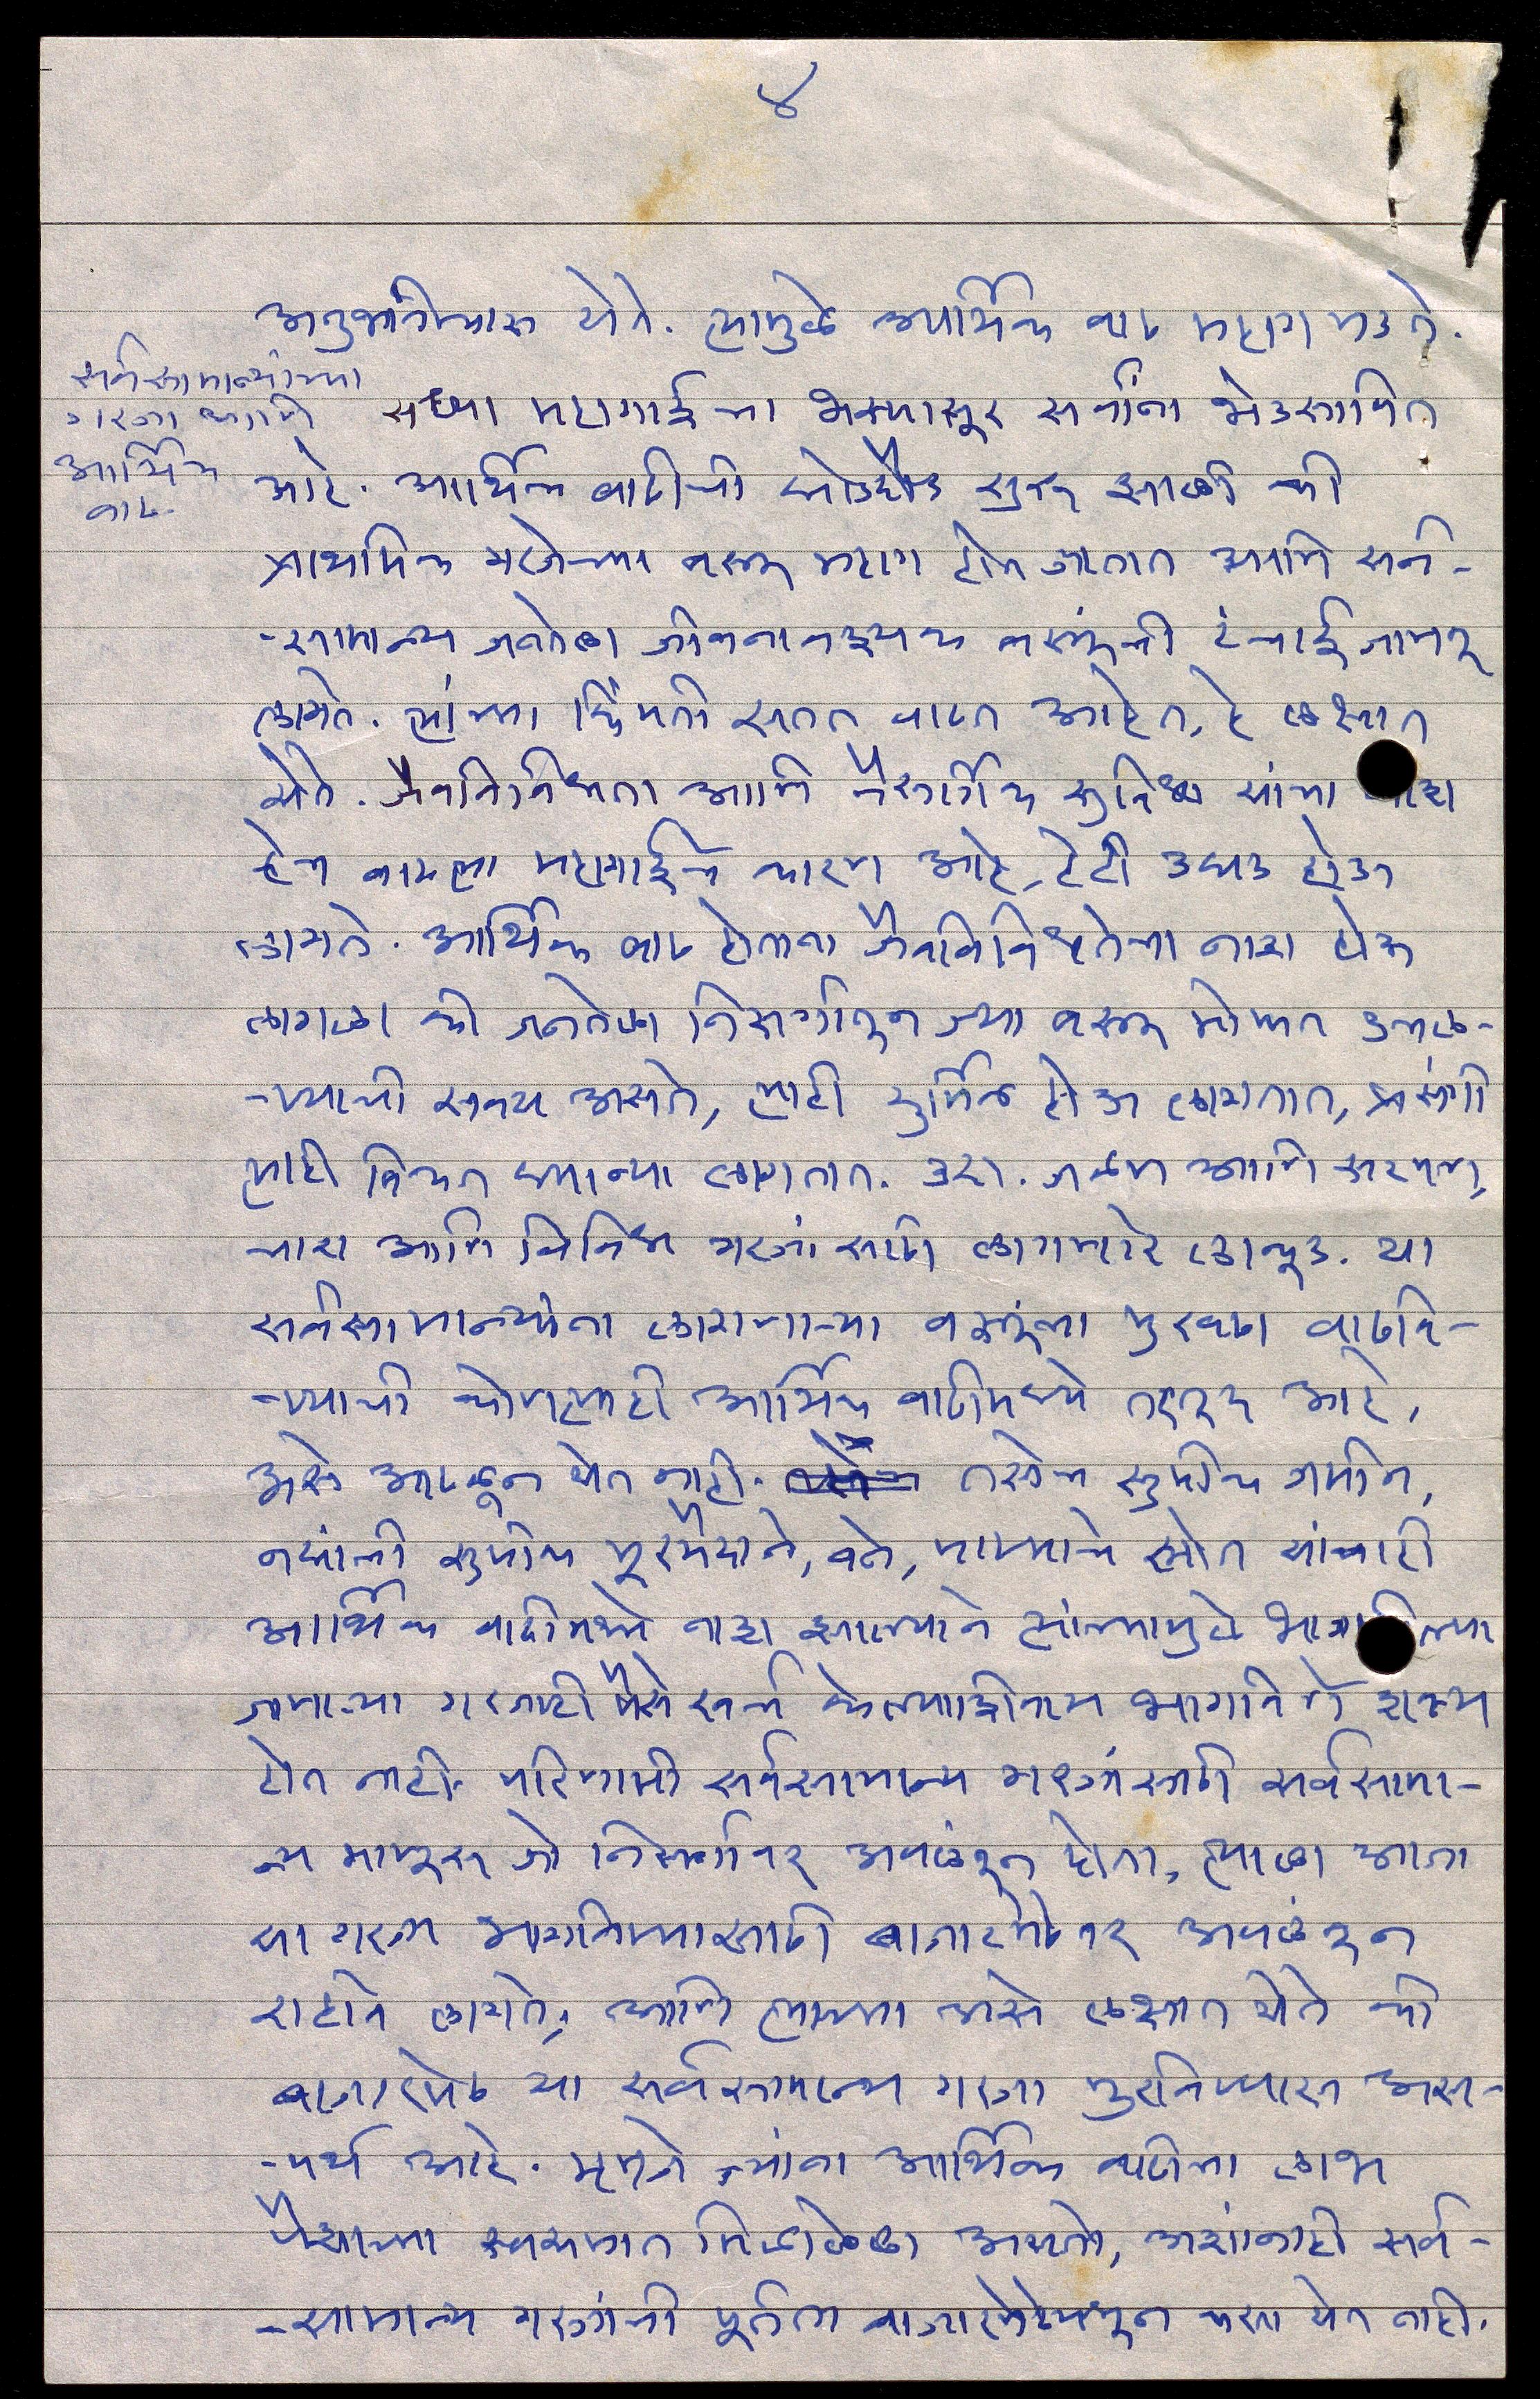 ४
अनुभवास येते. त्यामुळे आर्थिक वाढ महाग पडते.
सर्वसामान्यांच्या
गरजा आणि
आर्थिक
वाढ
सध्या महागाईचा भस्मासूर सर्वांना भेडसावित
आहे. आर्थिक वाढीची घोडदौड सुरू झाली की
प्राथमिक गरजेच्या वस्तू महाग होत जातात आणि सर्व-
-सामान्य जनतेला जीवनावश्यक वस्तूंची टंचाई जाणवू
लागते. त्यांच्या किंमती सतत वाढत आहेत, हे लक्षात
येते. जैवविविधता आणि नैसर्गिक सुविधा यांचा नाश
हेच वाढत्या महागाईचे कारण आहे, हेही उघड होऊ
लागते. आर्थिक वाढ होताना जैवविविधतेचा नाश होऊ
लागला की जनतेला निसर्गातून ज्या वस्तू मोफत उचल-
-ण्याची सवय असते, त्याही दुर्मिळ होऊ लागतात, प्रसंगी
त्याही विकत घ्याव्या लागतात. उदा. जळण आणि सरपण,
चारा आणि विविध गरजांसाठी लागणारे लाकूड. या
सर्वसामान्यांना लागणाऱ्या वस्तूंचा पुरवठा वाढवि-
-ण्याची कोणतीही आर्थिक वाढीमध्ये तरतूद आहे,
असे आढळून येत नाही. तसेच सुपीक जमीन,
नद्यांची सुपीक पूरमैदाने, वने, पाण्याचे स्रोत यांचाही
आर्थिक वाढीमध्ये नाश झाल्याने त्यांच्यामुळे भागविल्या
जाणाऱ्या गरजाही पैसे खर्च केल्याशिवाय भागविणे शक्य
होत नाही. परिणामी सर्वसामान्य गरजांसाठी सर्वसामा-
न्य माणूस जो निसर्गावर अवलंबून होता, त्याला आता
या गरजा भागविण्यासाठी बाजारपेठेवर अवलंबून
राहावे लागते, आणि त्याच्या असे लक्षात येते की
बाजारपेठ या सर्वसामान्य गरजा पुरविण्यास अस-
-मर्थ आहे. म्हणजे ज्यांना आर्थिक वाढीचा लाभ
पैशाच्या स्वरूपात मिळालेला असतो, अशांनाही सर्व-
-सामान्य गरजांची पूर्तता बाजारपेठेमधून करता येत नाही.